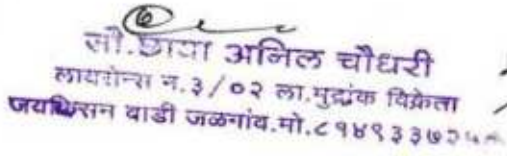 सौ. छाया अनिल चौधरी
लायसेन्स न. ३/०२ ला.मुद्रांक विक्रेता
जयकिसन वाडी जळगांव.मो.